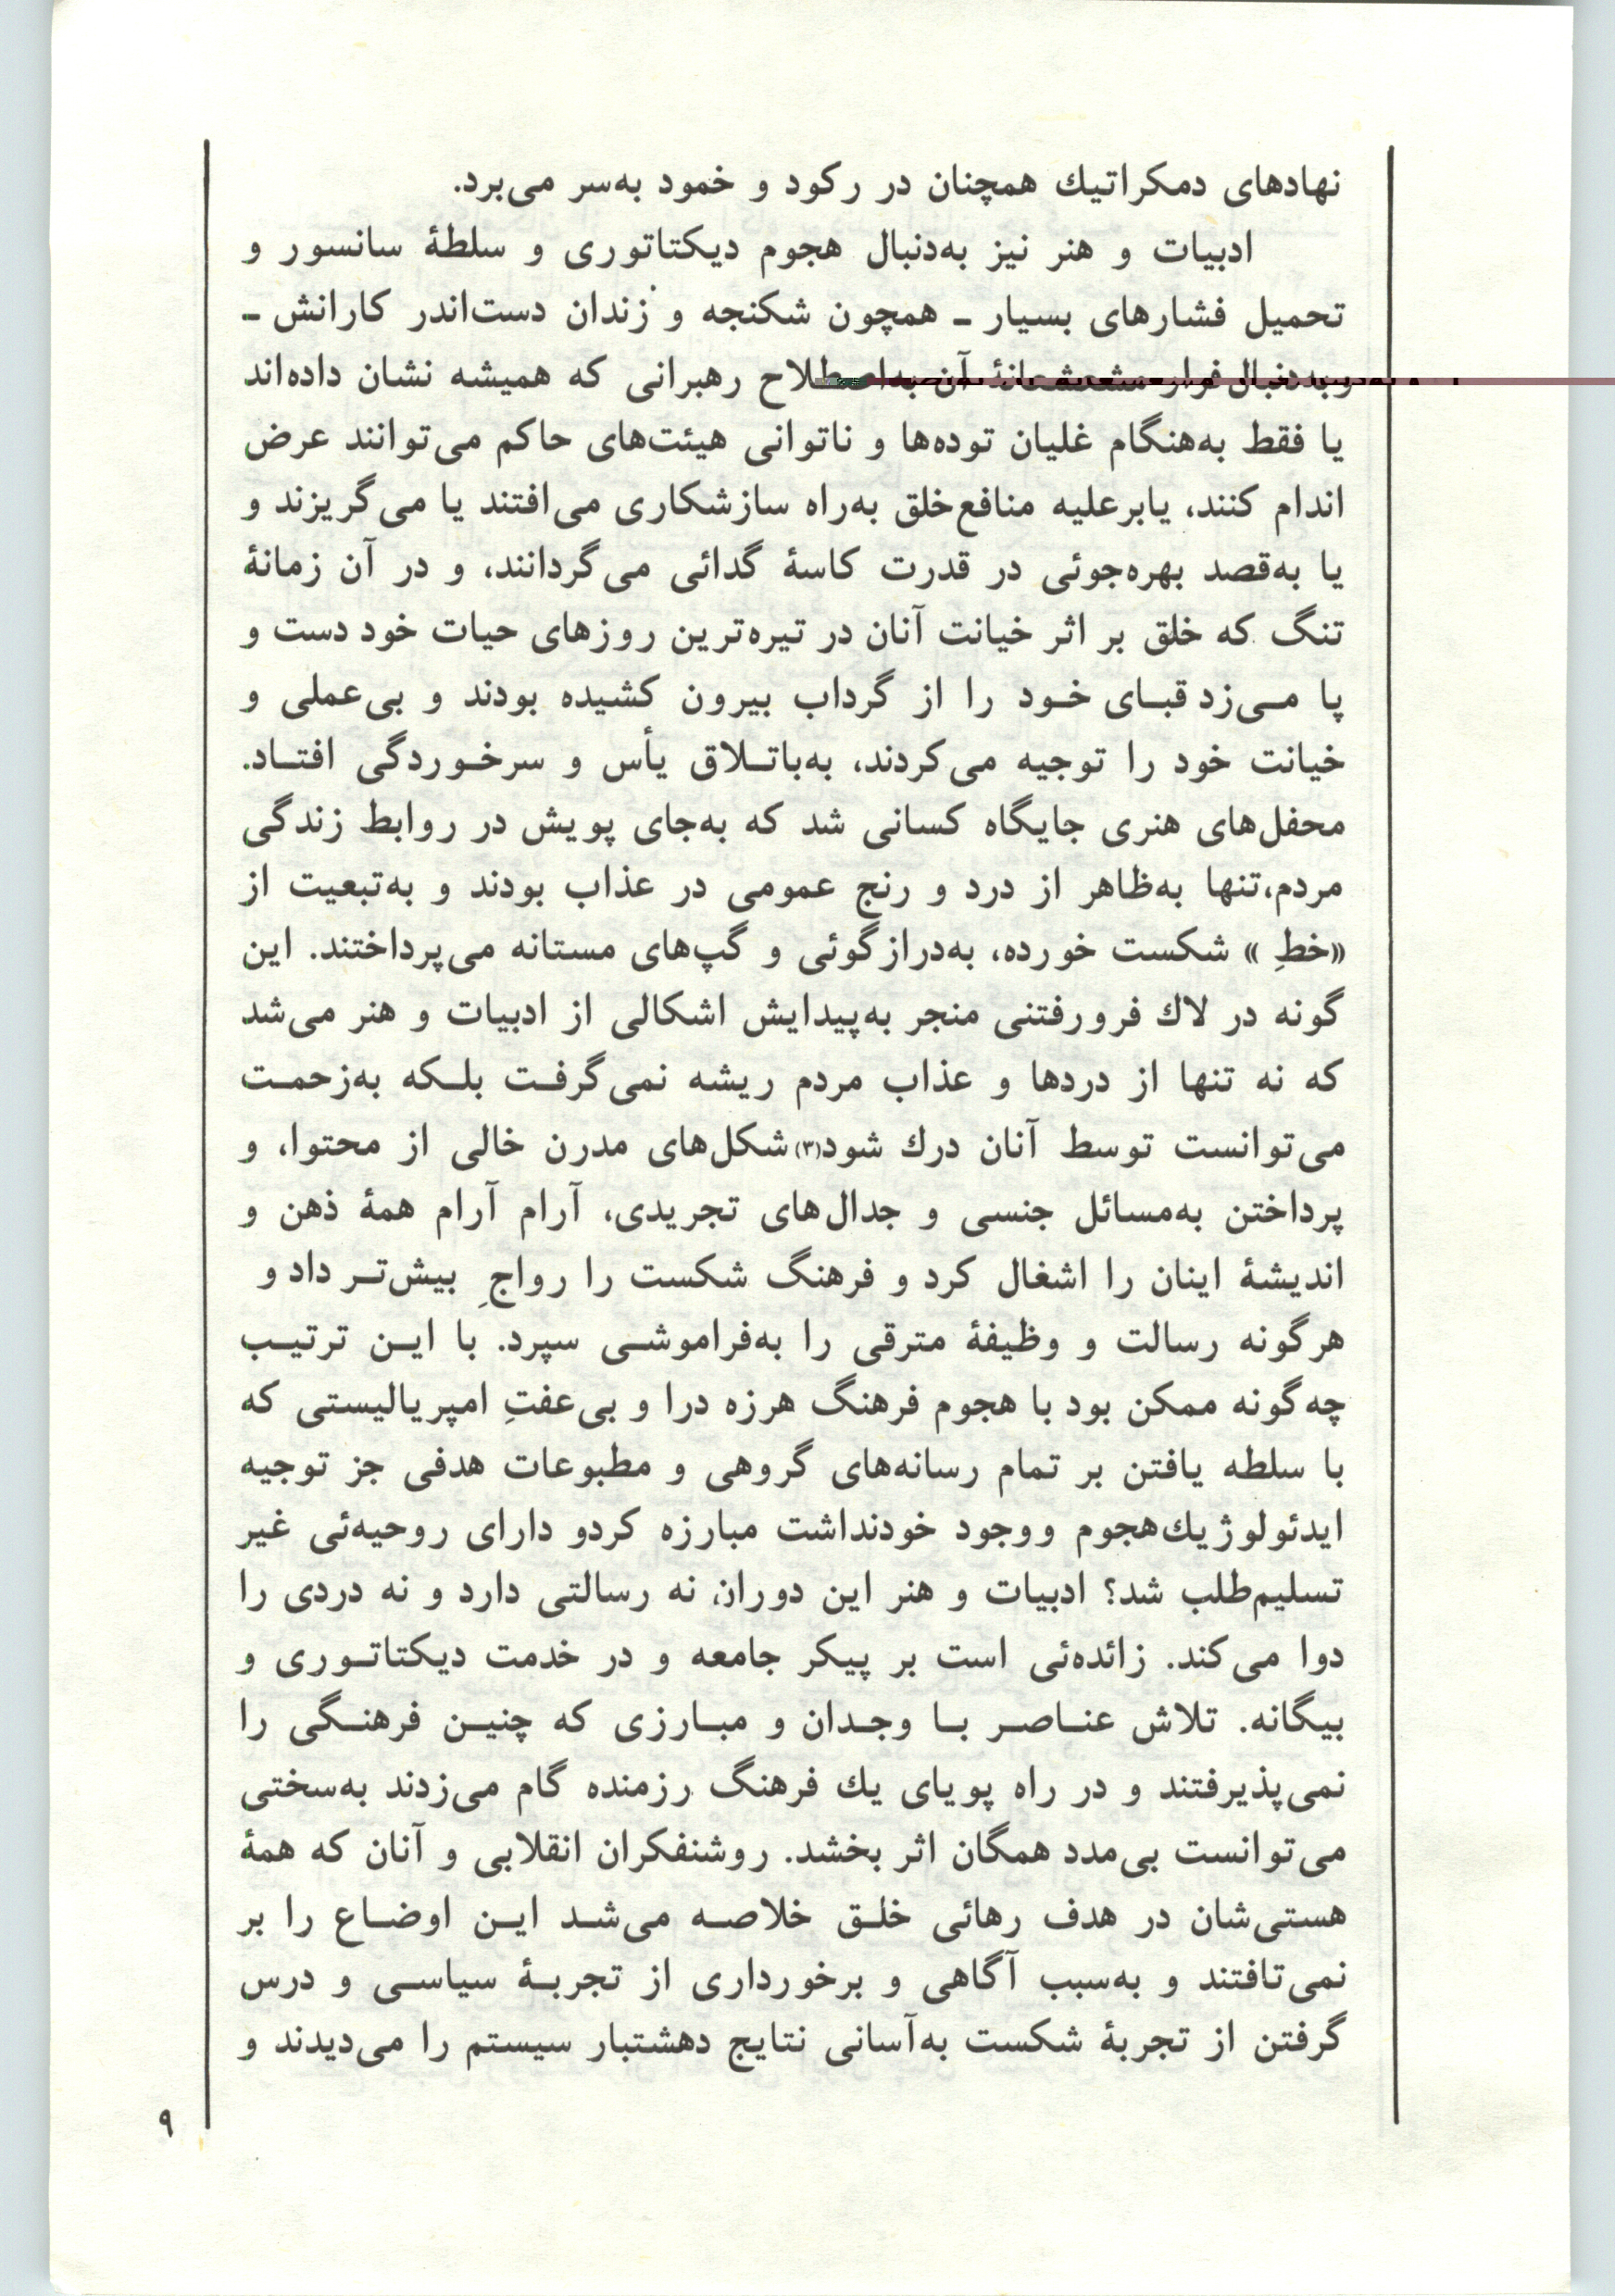 نهادهای دمکراتیك همچنان در رکود و خمود به‌سر می‌برد.
ادبیات و هنر نیز به‌دنبال هجوم دیکتاتوری و سلطهٔ سانسور و
تحمیل فشارهای بسیار ـ همچون شکنجه و زندان دست‌اندر کارانش ـ
و به‌دنبال فرار مشعشعانهٔ آن به‌اصطلاح رهبرانی که همیشه نشان داده‌اند
یا فقط به‌هنگام غلیان توده‌ها و ناتوانی هیئت‌های حاکم می‌توانند عرض
اندام کنند، یابرعلیه منافع‌خلق به‌راه سازشکاری می‌افتند یا می‌گریزند و
یا به‌قصد بهره‌جوئی در قدرت کاسهٔ گدائی می‌گردانند، و در آن زمانهٔ
تنگ که خلق بر اثر خیانت آنان در تیره‌ترین روزهای حیات خود دست و
پا مـی‌زد قبـای خـود را از گرداب بیرون کشیده بودند و بی‌عملی و
خیانت خود را توجیه می‌کردند، به‌باتـلاق یأس و سرخـوردگی افتـاد.
محفل‌های هنری جایگاه کسانی شد که به‌جای پویش در روابط زندگی
مردم،تنها به‌ظاهر از درد و رنج عمومی در عذاب بودند و به‌تبعیت از
«خطِ » شکست خورده، به‌درازگوئی و گپ‌های مستانه می‌پرداختند. این
گونه در لاك فرورفتنی منجر به‌پیدایش اشکالی از ادبیات و هنر می‌شد
که نه تنها از دردها و عذاب مردم ریشه نمی‌گرفـت بلـکه به‌زحمـت
می‌توانست توسط آنان درك شود(۳)شکل‌های مدرن خالی از محتوا، و
پرداختن به‌مسائل جنسی و جدال‌های تجریدی، آرام آرام همهٔ ذهن و
اندیشهٔ اینان را اشغال کرد و فرهنگ شکست را رواجِ بیش‌تـر داد و
هرگونه رسالت و وظیفهٔ مترقی را به‌فراموشـی سپرد. با ایـن ترتیـب
چه‌گونه ممکن بود با هجوم فرهنگ هرزه درا و بی‌عفتِ امپریالیستی که
با سلطه یافتن بر تمام رسانه‌های گروهی و مطبوعات هدفی جز توجیه
ایدئولوژیك‌هجوم ووجود خودنداشت مبارزه کردو دارای روحیه‌ئی غیر
تسلیم‌طلب شد؟ ادبیات و هنر این دوران نه رسالتی دارد و نه دردی را
دوا می‌کند. زائده‌ئی است بر پیکر جامعه و در خدمت دیکتاتـوری و
بیگانه. تلاش عنـاصـر بـا وجـدان و مبـارزی که چنیـن فرهنـگی را
نمی‌پذیرفتند و در راه پویای یك فرهنگ رزمنده گام می‌زدند به‌سختی
می‌توانست بی‌مدد همگان اثر بخشد. روشنفکران انقلابی و آنان که همهٔ
هستی‌شان در هدف رهائی خلـق خلاصـه می‌شـد ایـن اوضـاع را بر
نمی‌تافتند و به‌سبب آگاهی و برخورداری از تجربـهٔ سیاسـی و درس
گرفتن از تجربهٔ شکست به‌آسانی نتایج دهشتبار سیستم را می‌دیدند و
۹